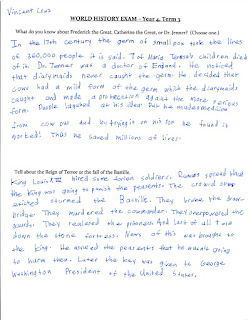 Vincent Cruz
WORLD HISTORY EXAM - Year 4, Term 3
What do you know about Frederick the Great, Catherine the Great, or Dr. Jenner? (Choose one.)
In the 17th century the germ of small pox took the lives
of 300,000 people it is said. 7 of Maria Teresa's children died
of it. Dr. Jenner was a doctor of England. He noticed
that diarymaids never caught the germ. He decided that
cows had a mild form of the germ which the diarymaids
caught and made a protection against the more serious
form. People laughed at his idea. But he
from cow pus and by trying in on his son he found it
worked! Thus he saved millions of lives.
Tell about the Reign of Terror or the fall of the Bastille.
King Louis hired some foreign soldiers. Rumors spread that
the king was going to punish the peasants. The crowd soon
stormed the Bastille. They broke the draw-
bridge. They murdered the commander. They overpowered the
guards. They realeased the prisoners. And last of all tore
down the stone fortress. News of this was brought to
the king. He assured the peasants that he was not going
to harm them. Later the key was given to George
Washington President of the United States.